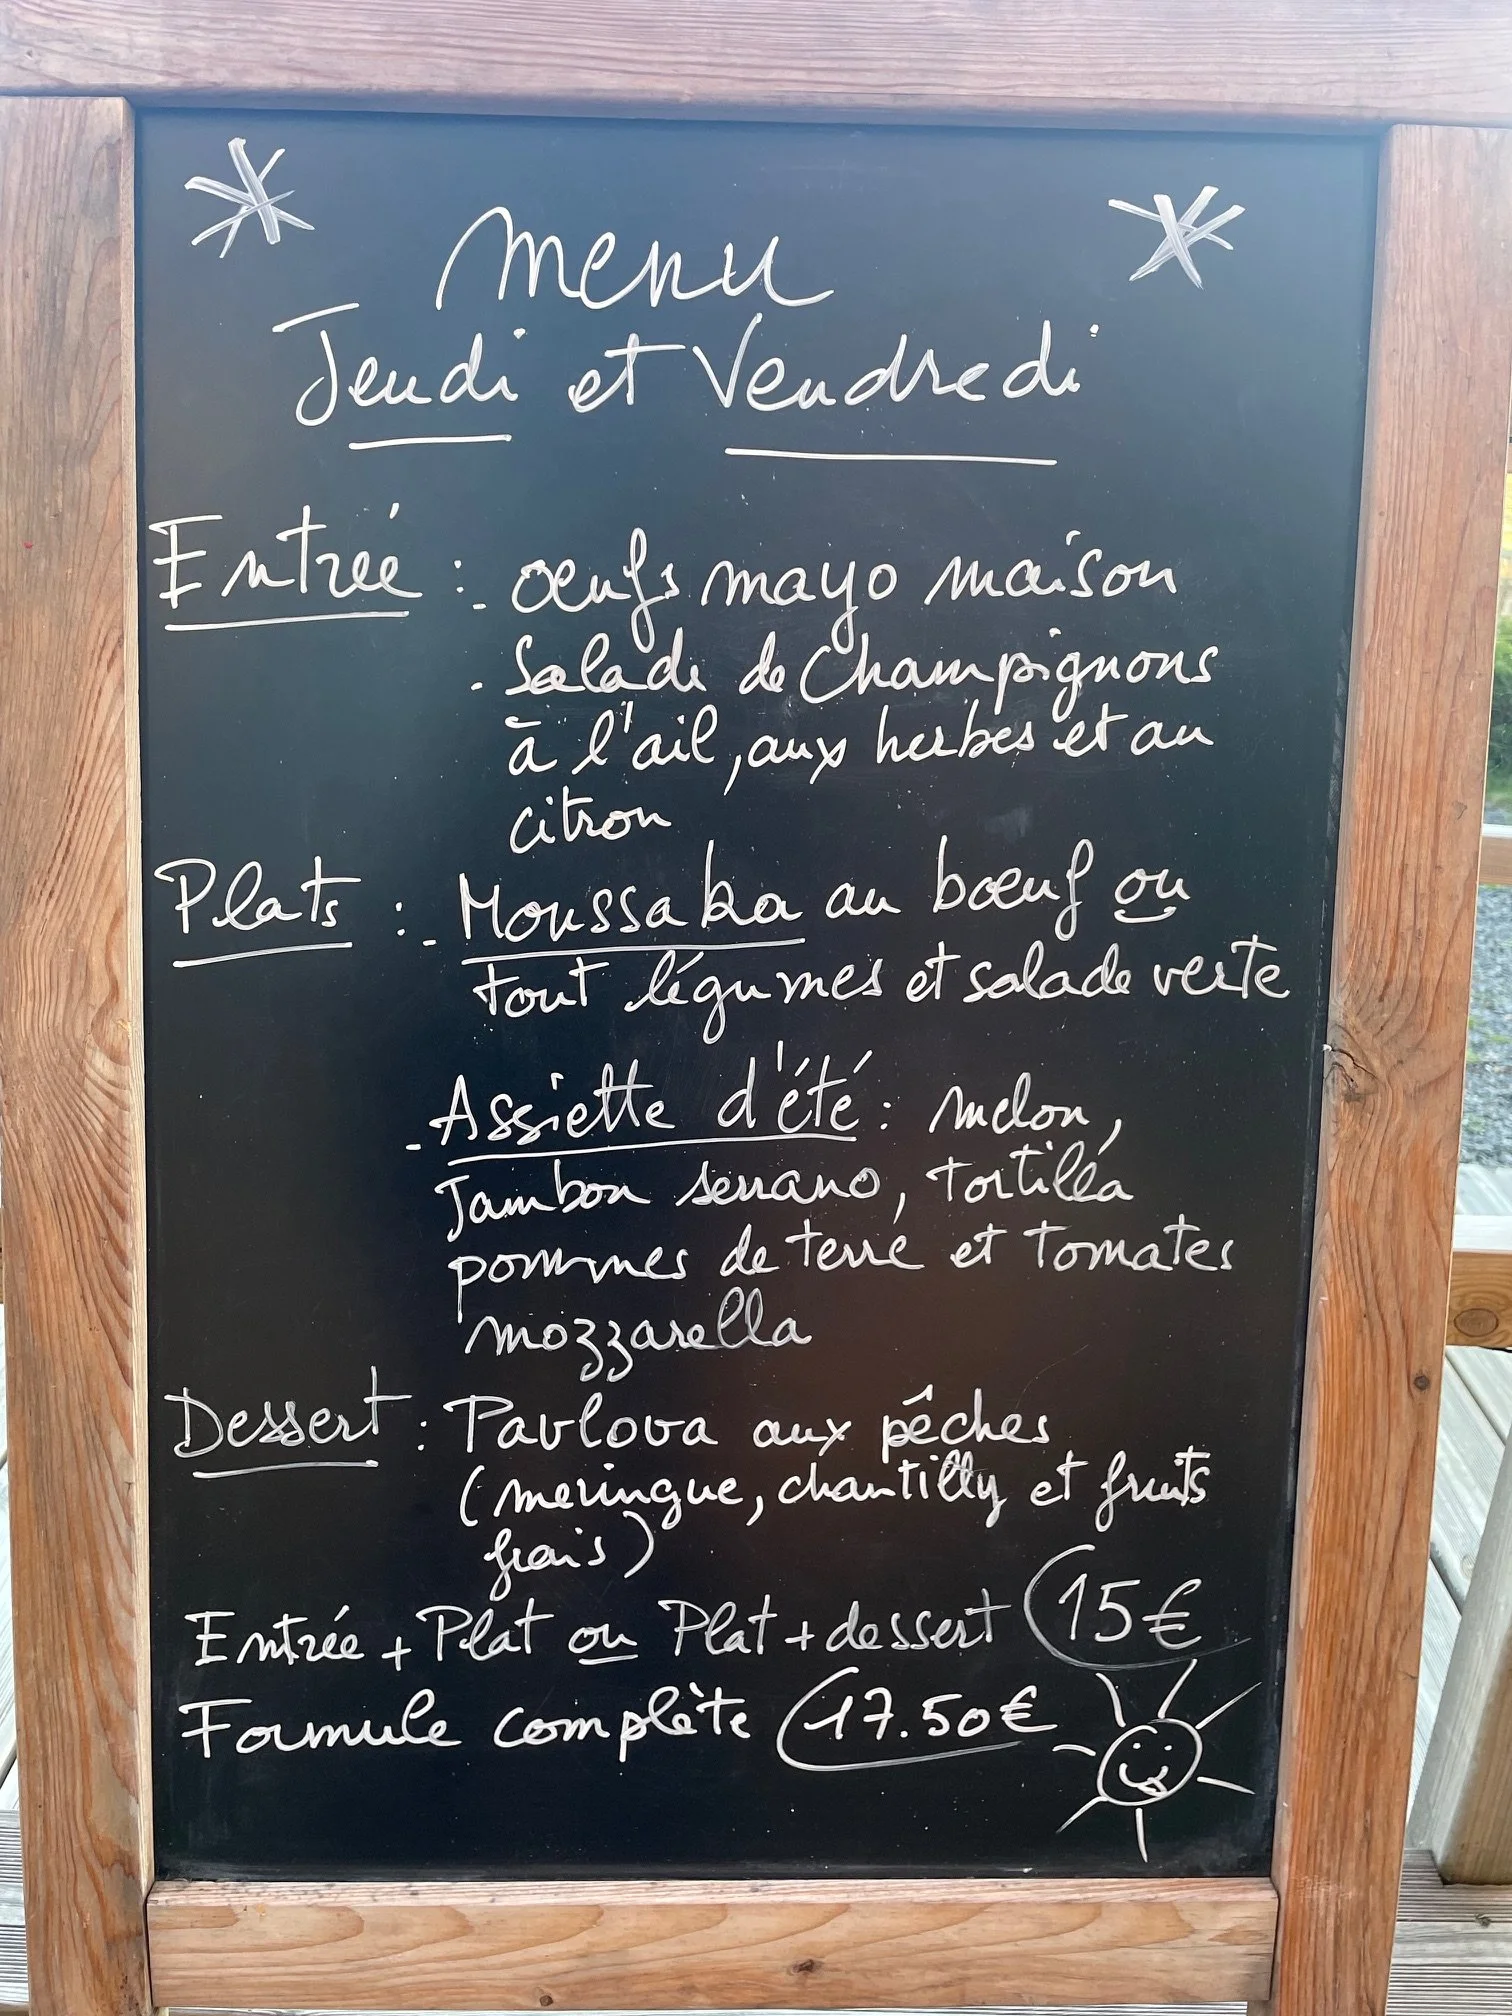 Menu
Jeudi et Vendredi
Entrée : - oeufs mayo maison
- Salade de Champignons
à l'ail, aux herbes et au
citron
Plats : - Moussaka au bœuf ou
tout légumes et salade verte
- Assiette d'été : melon,
Jambon serrano, tortilla
pommes de terre et tomates
mozzarella
Dessert : Pavlova aux pêches
(meringue, chantilly et fruits
frais)
Entrée + Plat ou Plat + dessert 15€
Formule complète 17.50€